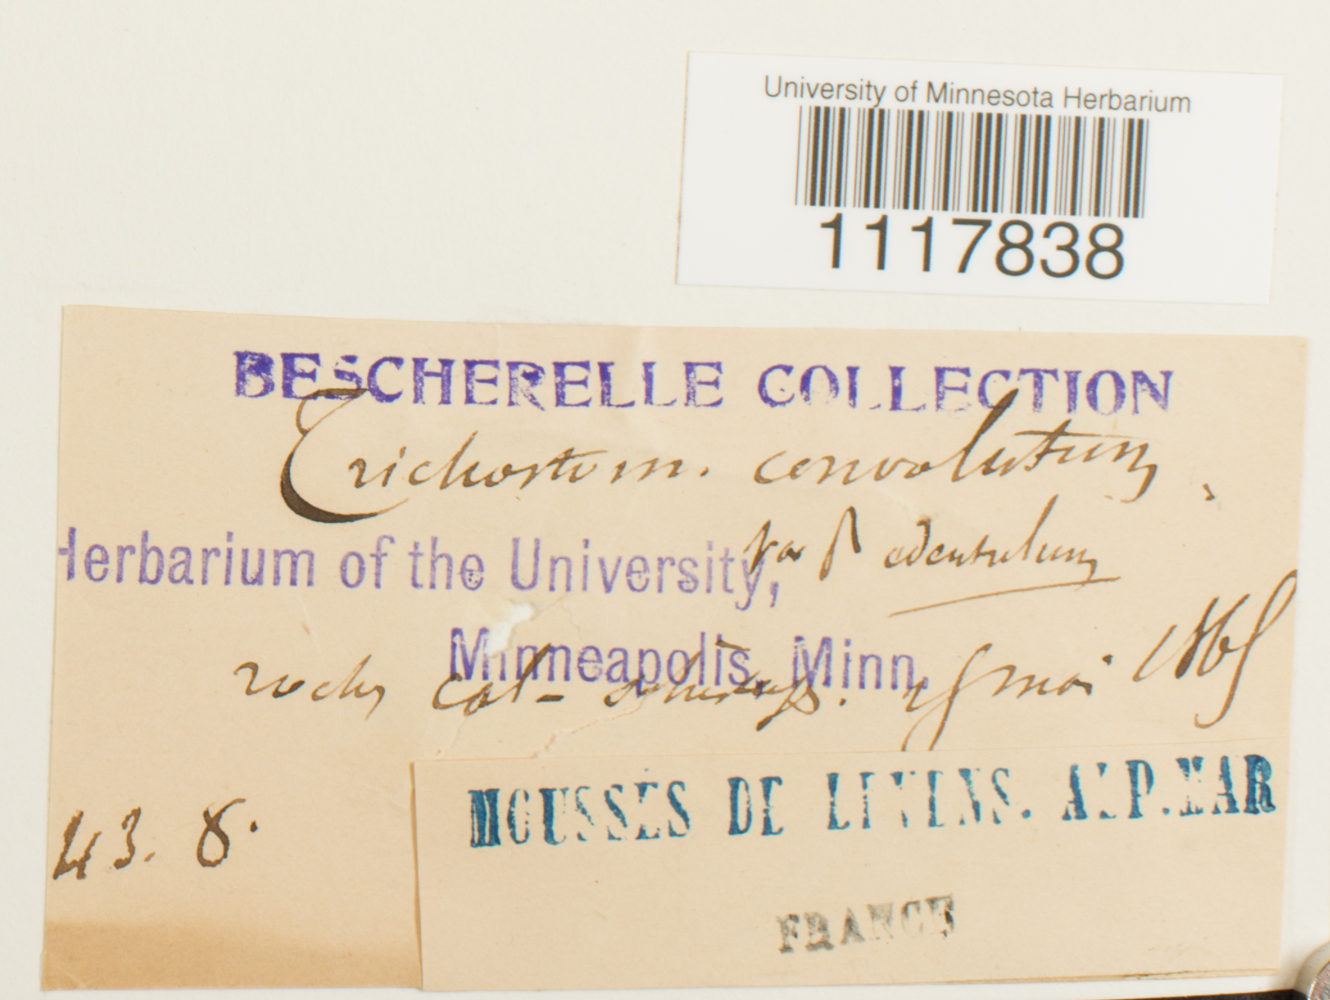 University of Minnesota Herbarium
1117838
BESCHERELLE COLLECTION
Trichostom. convolutum,
var β edentulum
Herbarium of the University,
Minneapolis, Minn.
roches cal- mai 1865
43. 8.
MOUSSES DE LEVENS. ALP. MAR
FRANCE